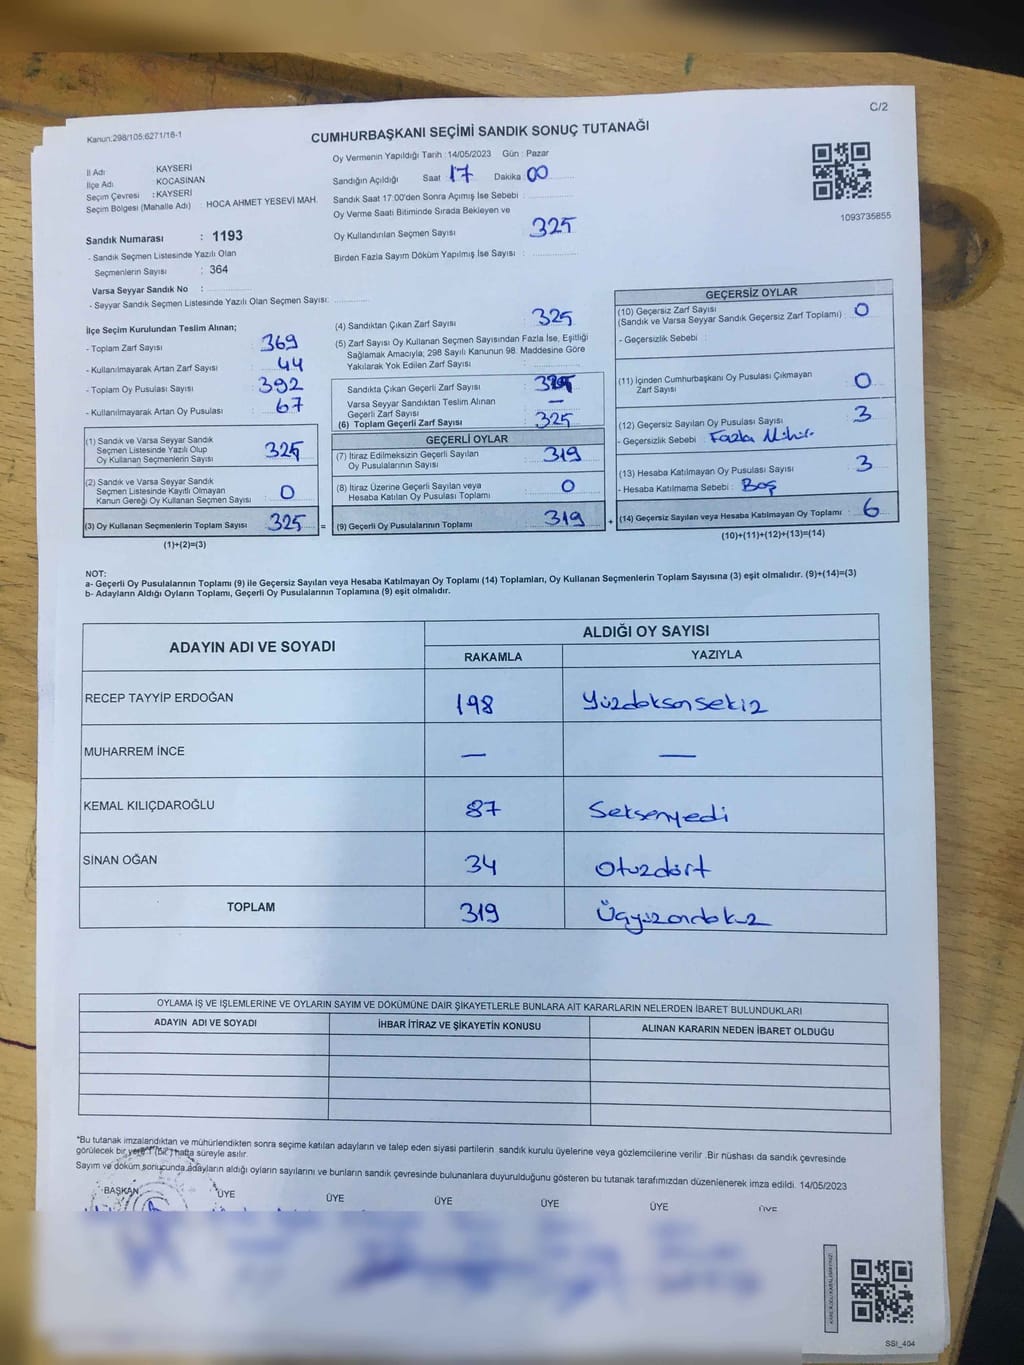 C/2
Kanun:298/105;6271/18-1
CUMHURBAŞKANI SEÇİMİ SANDIK SONUÇ TUTANAĞI
İl Adı KAYSERİ
İlçe Adı KOCASİNAN
Seçim Çevresi : KAYSERİ
Seçim Bölgesi (Mahalle Adı) : HOCA AHMET YESEVİ MAH.
Sandık Numarası : 1193
- Sandık Seçmen Listesinde Yazılı Olan
Seçmenlerin Sayısı : 364
Varsa Seyyar Sandık No :
- Seyyar Sandık Seçmen Listesinde Yazılı Olan Seçmen Sayısı:
Oy Vermenin Yapıldığı Tarih : 14/05/2023 Gün : Pazar
Sandığın Açıldığı Saat 17 Dakika 00
Sandık Saat 17:00'den Sonra Açımış İse Sebebi :
Oy Verme Saati Bitiminde Sırada Bekleyen ve
Oy Kullandırılan Seçmen Sayısı : 325
Birden Fazla Sayım Döküm Yapılmış İse Sayısı :
1093735855
İlçe Seçim Kurulundan Teslim Alınan;
- Toplam Zarf Sayısı : 369
- Kullanılmayarak Artan Zarf Sayısı : 44
- Toplam Oy Pusulası Sayısı : 392
- Kullanılmayarak Artan Oy Pusulası : 67
(1) Sandık ve Varsa Seyyar Sandık
Seçmen Listesinde Yazılı Olup
Oy Kullanan Seçmenlerin Sayısı : 325
(2) Sandık ve Varsa Seyyar Sandık
Seçmen Listesinde Kayıtlı Olmayan
Kanun Gereği Oy Kullanan Seçmen Sayısı : 0
(3) Oy Kullanan Seçmenlerin Toplam Sayısı : 325 =
(1)+(2)=(3)
(4) Sandıktan Çıkan Zarf Sayısı : 325
(5) Zarf Sayısı Oy Kullanan Seçmen Sayısından Fazla İse, Eşitliği
Sağlamak Amacıyla; 298 Sayılı Kanunun 98. Maddesine Göre
Yakılarak Yok Edilen Zarf Sayısı :
Sandıkta Çıkan Geçerli Zarf Sayısı : 325
Varsa Seyyar Sandıktan Teslim Alınan
Geçerli Zarf Sayısı : —
(6) Toplam Geçerli Zarf Sayısı : 325
GEÇERLİ OYLAR
(7) İtiraz Edilmeksizin Geçerli Sayılan
Oy Pusulalarının Sayısı : 319
(8) İtiraz Üzerine Geçerli Sayılan veya
Hesaba Katılan Oy Pusulası Toplamı : 0
(9) Geçerli Oy Pusulalarının Toplamı : 319 +
GEÇERSİZ OYLAR
(10) Geçersiz Zarf Sayısı
(Sandık ve Varsa Seyyar Sandık Geçersiz Zarf Toplamı) : 0
- Geçersizlik Sebebi :
(11) İçinden Cumhurbaşkanı Oy Pusulası Çıkmayan
Zarf Sayısı : 0
(12) Geçersiz Sayılan Oy Pusulası Sayısı : 3
- Geçersizlik Sebebi : Fazla Mühür
(13) Hesaba Katılmayan Oy Pusulası Sayısı : 3
- Hesaba Katılmama Sebebi : Boş
(14) Geçersiz Sayılan veya Hesaba Katılmayan Oy Toplamı : 6
(10)+(11)+(12)+(13)=(14)
NOT:
a- Geçerli Oy Pusulalarının Toplamı (9) ile Geçersiz Sayılan veya Hesaba Katılmayan Oy Toplamı (14) Toplamları, Oy Kullanan Seçmenlerin Toplam Sayısına (3) eşit olmalıdır. (9)+(14)=(3)
b- Adayların Aldığı Oyların Toplamı, Geçerli Oy Pusulalarının Toplamına (9) eşit olmalıdır.
ADAYIN ADI VE SOYADI ALDIĞI OY SAYISI
RAKAMLA YAZIYLA
RECEP TAYYİP ERDOĞAN 198 Yüzdoksansekiz
MUHARREM İNCE — —
KEMAL KILIÇDAROĞLU 87 Seksenyedi
SİNAN OĞAN 34 Otuzdört
TOPLAM 319 Üçyüzondokuz
OYLAMA İŞ VE İŞLEMLERİNE VE OYLARIN SAYIM VE DÖKÜMÜNE DAİR ŞİKAYETLERLE BUNLARA AİT KARARLARIN NELERDEN İBARET BULUNDUKLARI
ADAYIN ADI VE SOYADI İHBAR İTİRAZ VE ŞİKAYETİN KONUSU ALINAN KARARIN NEDEN İBARET OLDUĞU
*Bu tutanak imzalandıktan ve mühürlendikten sonra seçime katılan adayların ve talep eden siyasi partilerin sandık kurulu üyelerine veya gözlemcilerine verilir .Bir nüshası da sandık çevresinde
görülecek bir yere 1 (bir) hafta süreyle asılır.
Sayım ve döküm sonucunda adayların aldığı oyların sayılarını ve bunların sandık çevresinde bulunanlara duyurulduğunu gösteren bu tutanak tarafımızdan düzenlenerek imza edildi. 14/05/2023
BAŞKAN ÜYE ÜYE ÜYE ÜYE ÜYE ÜYE
SSI_404